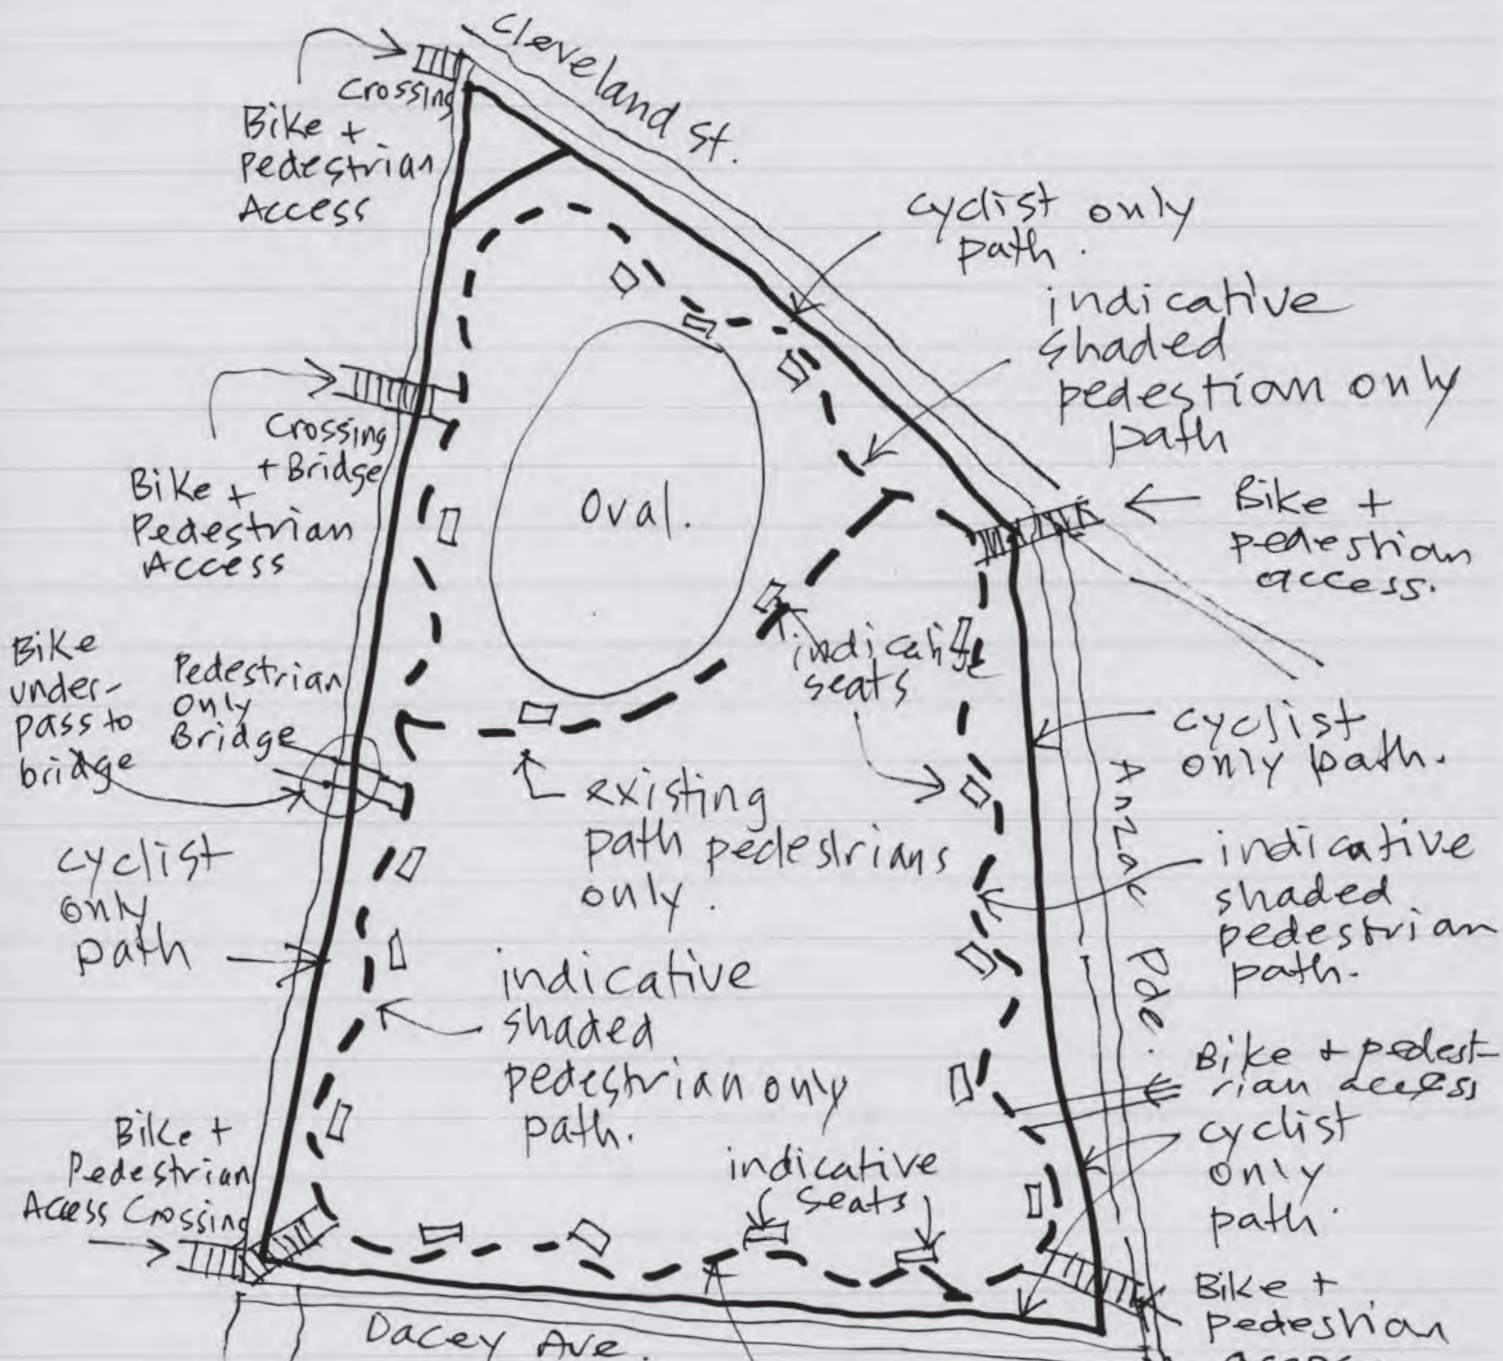 Cleveland St.
Crossing
Bike +
Pedestrian
Access
cyclist only
path.
indicative
shaded
pedestian only
path
Crossing
+ Bridge
Bike +
Pedestrian
Access
Oval.
Bike +
pedestrian
access.
Bike
under-
pass to
bridge
Pedestrian
Only
Bridge
indicative
seats
cyclist
only path.
existing
path pedestrians
only.
Anzac Pde.
cyclist
only
path
indicative
shaded
pedestrian
path.
indicative
shaded
pedestrian only
path.
Bike + pedest-
rian access
cyclist
only
path.
Bike +
Pedestrian
Access Crossing
indicative
seats
Bike +
pedestrian
Dacey Ave.